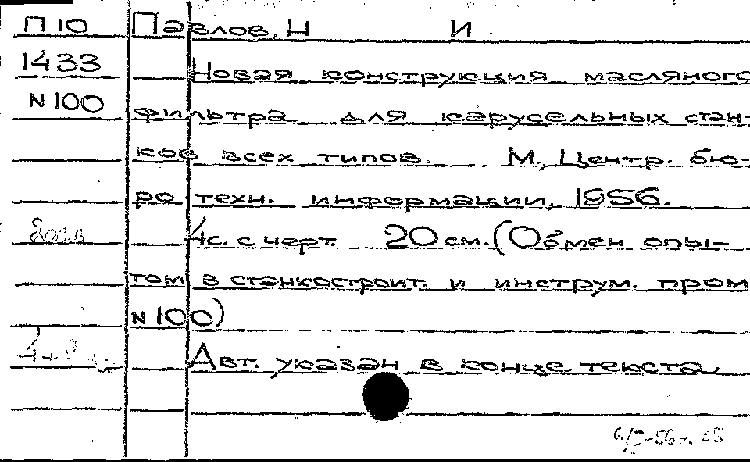 П10 Павлов, Н И
1433 Новая конструкция масляного
N100 фильтра для карусельных стан-
ков всех типов. М, Центр. бю-
ро техн. информации, 1956.
4с. с черт. 20 см. (Обмен опы-
том в станкостроит. и инструм. пром
N100)
Авт. указан в конце текста